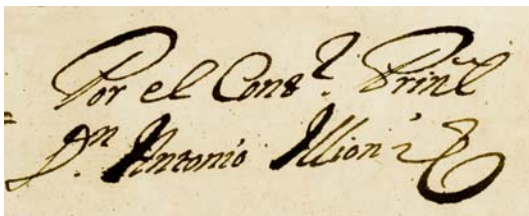 Por el Cons.r Prin.l
D.n Antonio Illioni